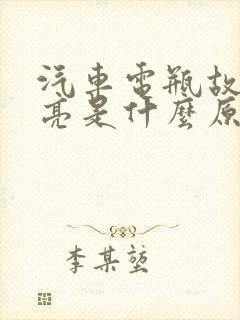 汽車電瓶故
亮是什麼原
李某堃